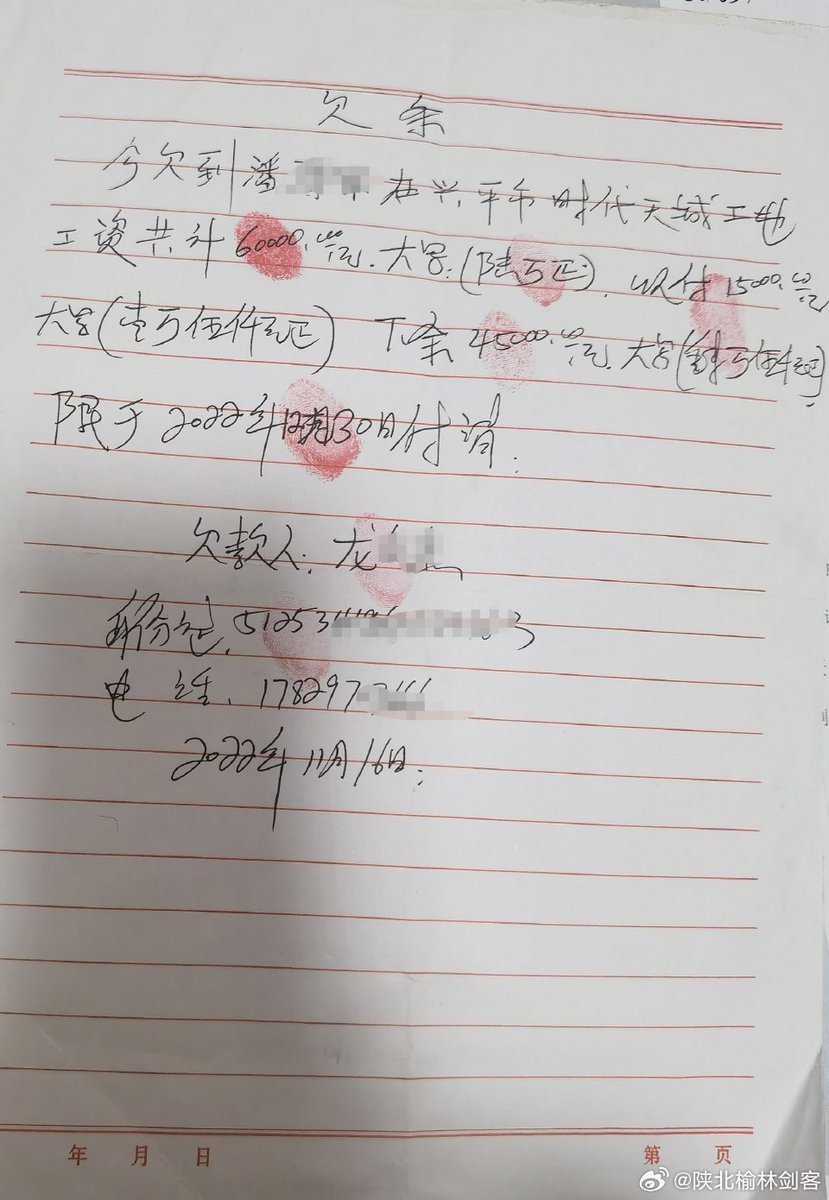 欠条
今欠到潘 在兴平市时代天城工地
工资共计60000.00元.大写:(陆万正).以付15000.00元
大写(壹万伍仟元正) 下余45000.00元.大写(肆万伍仟元正)
限于2022年12月30日付清.
欠款人:龙
身份证.512531
电话.178297
2022年11月16日.
年 月 日
第 页
@陕北榆林剑客